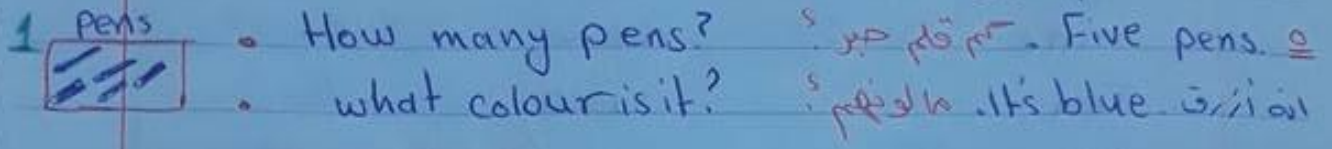 1 pens • How many pens? كم قلم حبر؟ Five pens. ٥
• what colour is it? ما لونهم؟ It's blue. انه أزرق